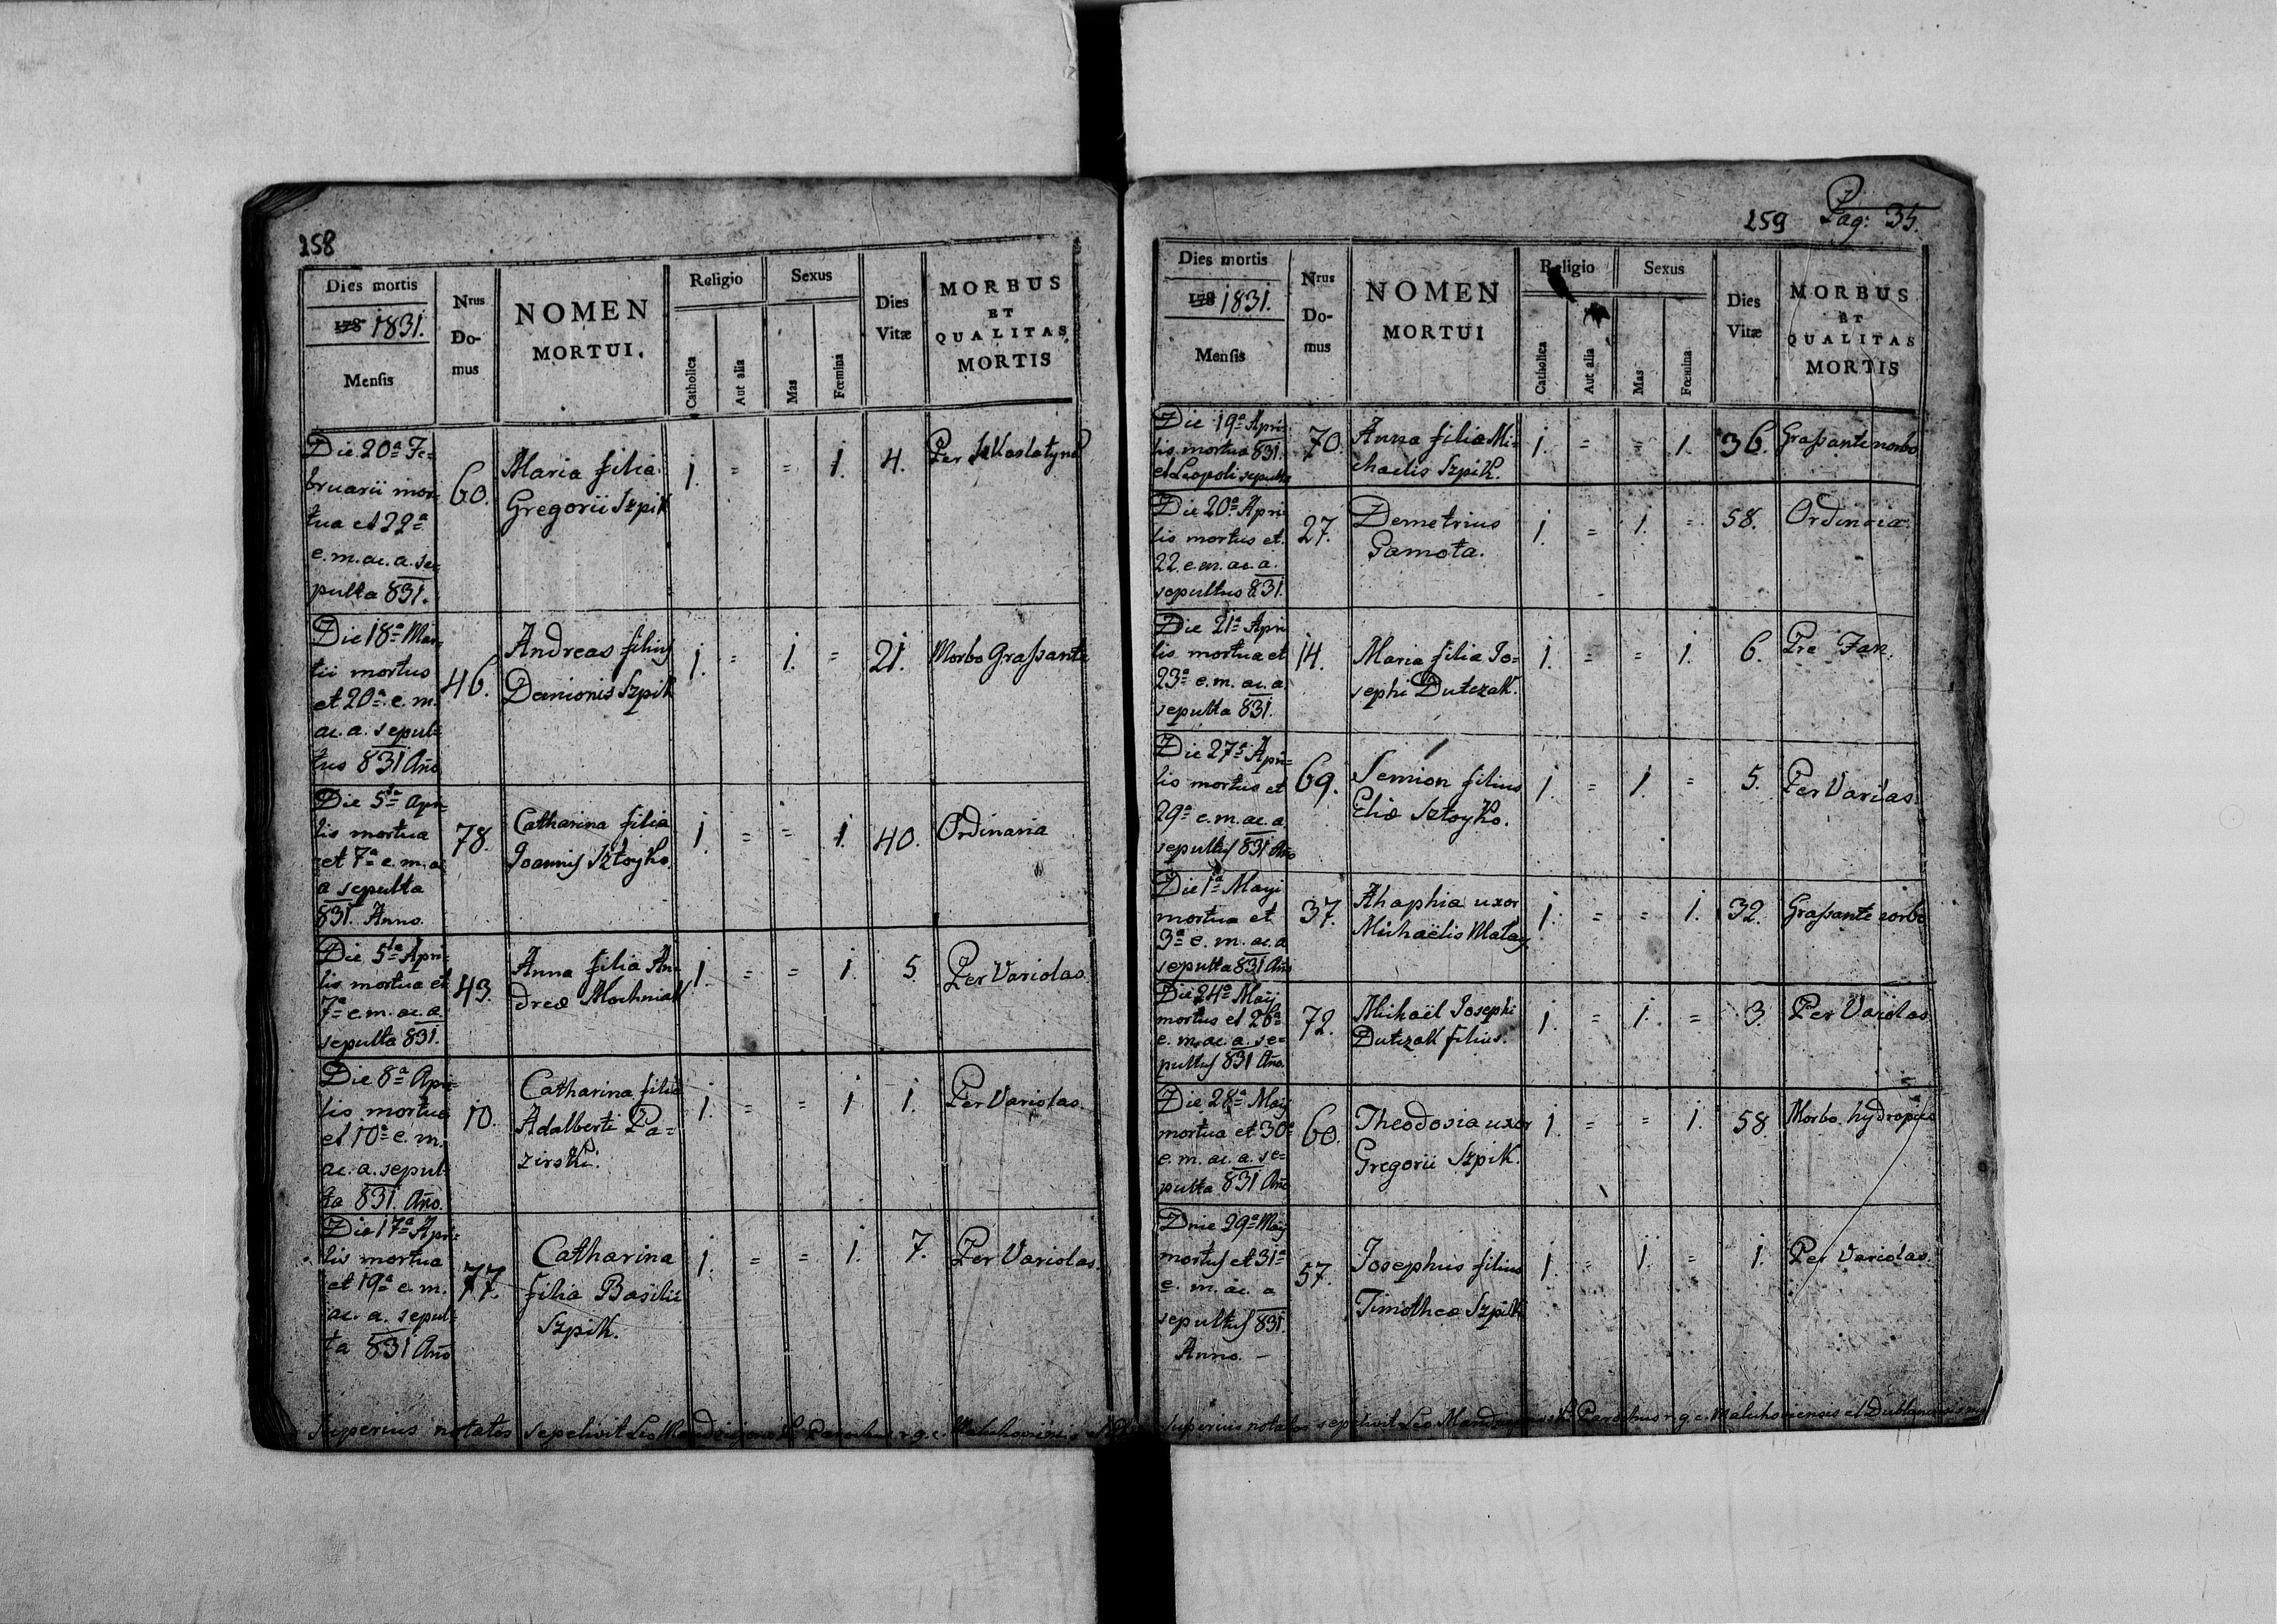 158
Dies mortis
178 1831.
Mensis
Nrus
Do-
mus
NOMEN
MORTUI.
Religio
Catholica
Aut alia
Sexus
Mas
Fœmina
Dies
Vitæ
MORBUS
ET
QUALITAS
MORTIS
Die 20ª Fe=
bruarii mor=
tua et 22ª
e.m. ac. a. se=
pulta 831.
60.
Maria filia
Gregorii Szpik
1. = = 1. 4.
Per
Die 18ª Mar=
tii mortus
et 20ª e. m.
ac. a. sepul=
tus 831 Año
46.
Andreas filius
Damionis Szpik
1. = 1. = 21.
Morbo Graſsante
Die 5ta Apri=
lis mortua
et 7ª e. m. ac
a sepulta
831. Anno.
78.
Catharina filia
Joannis Sztoyko.
1. = = 1. 40.
Ordinaria
Die 5ta Apri=
lis mortua et
7ª e.m. ac. a.
sepulta 831.
43.
Anna filia An=
dreæ Mochniak
1. = = 1. 5
Per Variolas.
Die 8ª Apri=
lis mortua
et 10ª e. m.
ac. a. sepul=
ta 831. Año.
10.
Catharina filia
Adalberti Pa=
zirski.
1. = = 1 1.
Per Variolas.
Die 17ª Apri=
lis mortua
et 19ª e. m.
ac. a. sepul=
ta 831 Año
77.
Catharina
filia Basilii
Szpik.
1. = = 1. 7.
Per Variolas.
Superius notatos sepelivit Leo Parochus r. g. c. Maluhoviensis
259 Pag: 35.
Dies mortis
178 1831.
Mensis
Nrus
Do-
mus
NOMEN
MORTUI
Religio
Catholica
Aut alia
Sexus
Mas
Fœmina
Dies
Vitæ
MORBUS
ET
QUALITAS
MORTIS
Die 19ª Apri=
lis mortua 831.
et Leopoli sepulta
70.
Anna filia Mi=
chaelis Szpik.
1. = = 1. 36.
Graſsante morbo
Die 20ª Apri=
lis mortus et
22 e.m. ac. a.
sepultus 831.
27.
Demetrius
Gamota.
1. = 1. = 58.
Ordinaria
Die 21ª Apri=
lis mortua et
23ª e. m. ac. a.
sepulta 831.
14.
Maria filia Jo=
sephi Dutczak.
1. = = 1. 6.
Die 27ª Apri=
lis mortus et
29ª e. m. ac. a
sepultus 831 Año
69.
Semion filius
Eliæ Sztoyko.
1. = 1. = 5.
Per Varilas
Die 1ª Mayi
mortua et
3ª e. m. ac. a
sepulta 831 Año
37.
Ahaphia uxor
Michaëlis Matay
1. = = 1. 32.
Graſsante morbo
Die 24ª Maij
mortus et 26ª
e. m. ac. a. se=
pultus 831 Año.
72.
Michaël Josephi
Dutczak filius.
1. = 1. = 3.
Per Variolas
Die 28ª Maij
mortua et 30ª
e. m. ac. a. se=
pulta 831 Año
60.
Theodosia uxor
Gregorii Szpik.
1. = = 1. 58.
Morbo hydropico
Dnie 29ª Maij
mortus et 31ª
e. m. ac. a
sepultus 831.
Anno. –
57.
Josephus filius
Timotheæ Szpik
1. = 1. = 1.
Per Variolas.
Superius notatos sepelivit Leo Parochus r. g. c. Maluhoviensis et Dublanensis